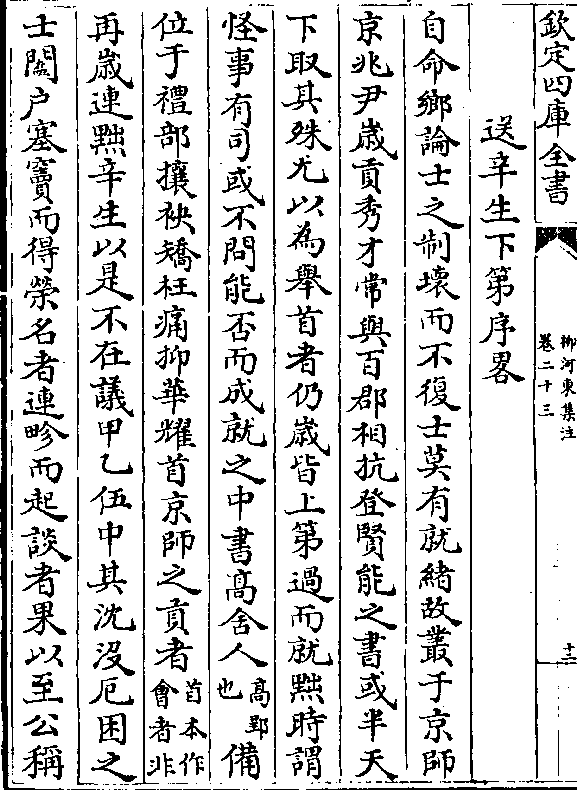 欽定四庫全書
柳河東集注
卷二十三
十二
送辛生下第序畧
自命鄉論士之制壞而不復士莫有就緒故叢于京師
京兆尹歲貢秀才常與百郡相抗登賢能之書或半天
下取其殊尤以為舉首者仍歲皆上第過而就黜時謂
怪事有司或不問能否而成就之中書髙舍人髙郢也備
位于禮部攘袂矯枉痛抑華耀首京師之貢者首本作會者非
再歲連黜辛生以是不在議甲乙伍中其沈沒厄困之
士闔户塞竇而得榮名者連畛而起談者果以至公稱